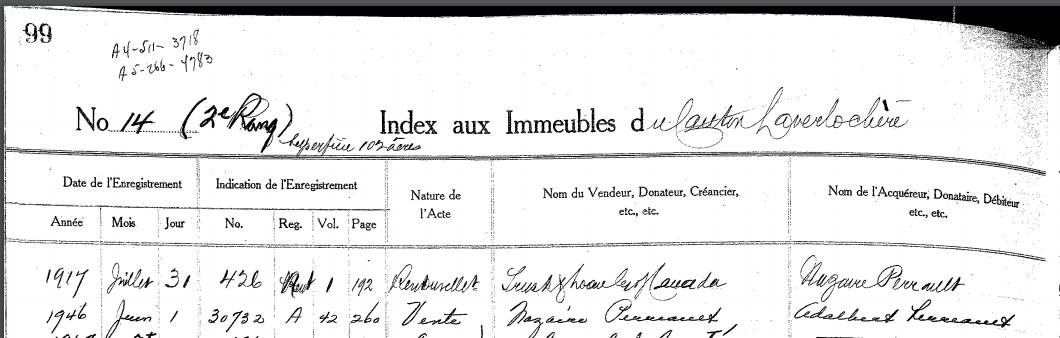 99
A4-511-3718
A5-266-4783
No 14 (2e Rang) Index aux Immeubles du Canton Laverlochère
Superficie 102 acres
Date de l'Enregistrement Indication de l'Enregistrement Nature de l'Acte Nom du Vendeur, Donateur, Créancier, etc., etc. Nom de l'Acquéreur, Donataire, Débiteur etc., etc.
Année Mois Jour No. Reg. Vol. Page
1917 Juillet 31 426 1 192 Renouvellet. Trust & Loan Co of Canada Nazaire Perreault
1946 Juin 1 30732 A 42 260 Vente Nazaire Perreault Adalbert Perreault